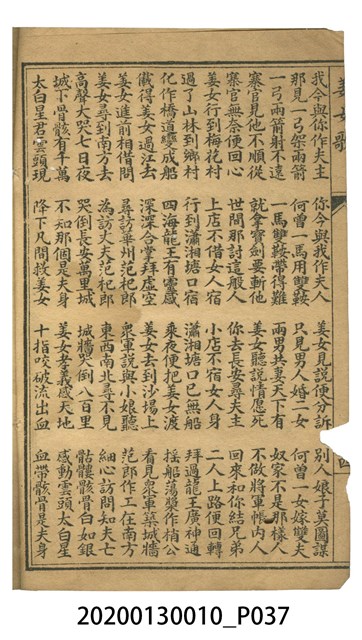 姜女歌
我今與你作夫主　你今與我作夫人　姜女見說便分訴　別人娘子莫圖謀
那見一弓架兩箭　何曾一馬用雙鞍　只見男人婚二女　何曾一女嫁雙夫
一弓兩箭射不遠　一馬雙鞍帶得難　兩男共妻天下有　奴家不是那樣人
寨官見他不順從　就拿寶劍要斬他　姜女聽說情愿死　不做將軍帳內人
寨官無奈便回心　世間那討這般人　你去長安尋夫主　回來和你結兄弟
姜女行到梅花村　上店不借女人宿　小店不宿女人身　二人上路便回轉
過了山林到鄉村　行到瀟湘塘口宿　瀟湘塘口已無船　拜過龍王廣神通
化作橋道變成船　四海龍王有靈感　乘夜便把姜女渡　搖船蕩槳作梢公
儎得姜女過江去　深深合掌拜虛空　姜女去到沙場上　看見衆軍築城牆
姜女進前相借問　尋訪華州范杞郎　衆軍說與小娘聽　范郎作工在南方
姜女尋到南方去　為訪丈夫范杞郎　東西南北尋不見　細心訪問知夫亡
高聲大哭七日夜　哭倒長安萬里城　城牆哭倒八百里　骷髏骸骨白如銀
城下骨骸有千萬　不知那個是夫身　姜女孝義感天地　感動雲頭太白星
太白星君雲頭現　降下凡間救姜女　十指咬破流出血　血帶骸骨是夫身
20200130010_P037